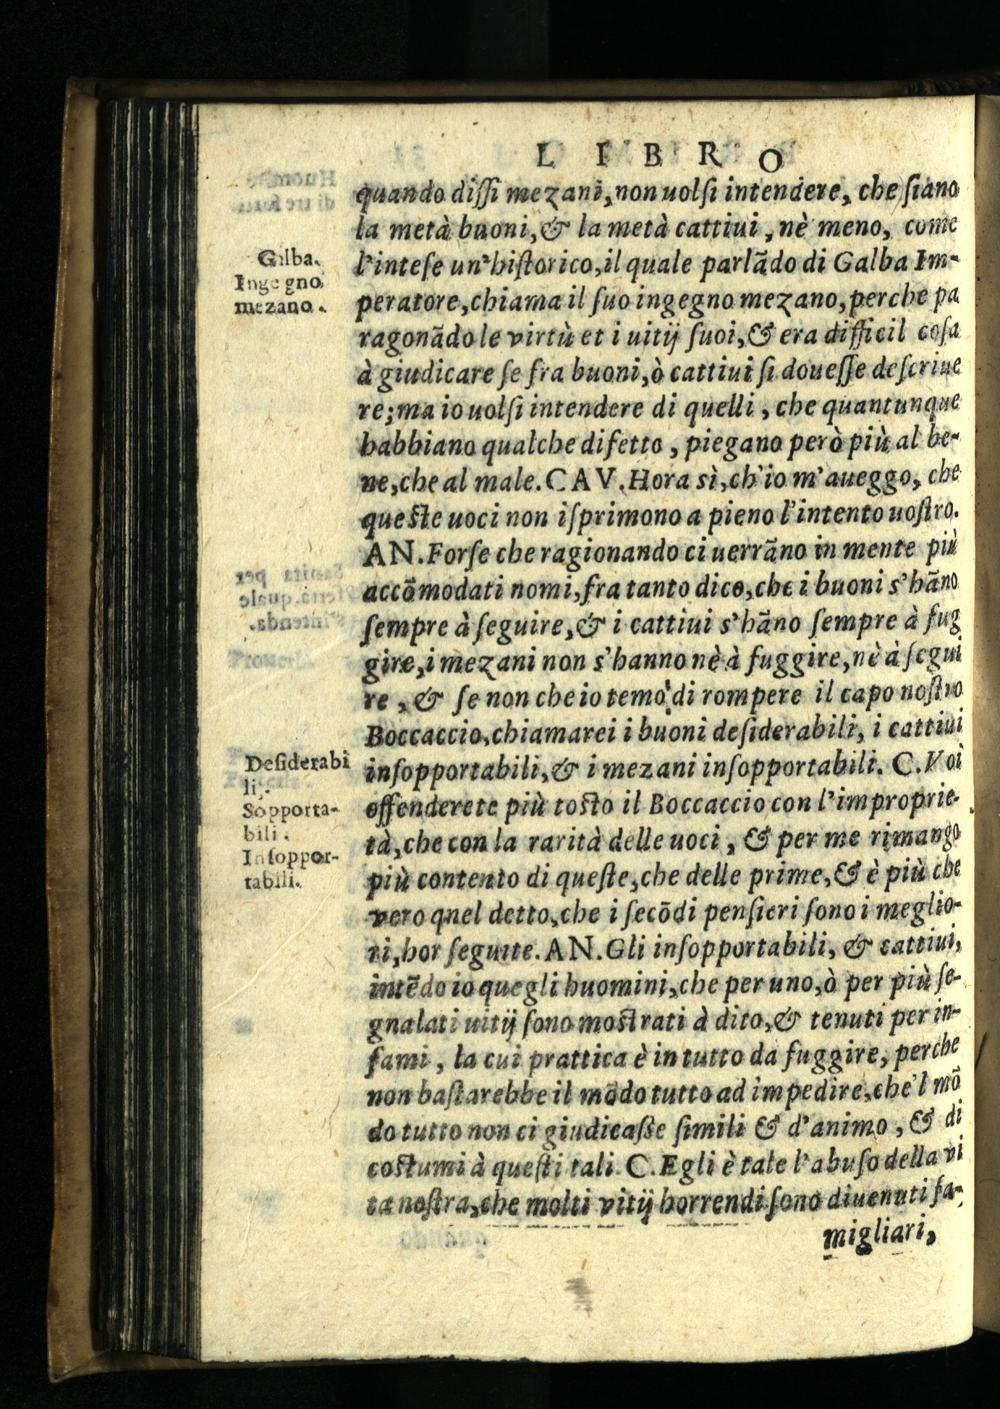 LIBRO
quando dissi mezani, non uolsi intendere, che siano
la metà buoni, & la metà cattiui, nè meno, come
l'intese un'historico, il quale parlãdo di Galba Im-
peratore, chiama il suo ingegno mezano, perche pa
ragonãdo le virtù et i uitij suoi, & era difficil cosa
à giudicare se fra buoni, ò cattiui si douesse descriue
re; ma io uolsi intendere di quelli, che quantunque
habbiano qualche difetto, piegano però più al be-
ne, che al male. CAV. Hora sì, ch'io m'aueggo, che
queste uoci non isprimono a pieno l'intento uostro.
AN. Forse che ragionando ci uerrãno in mente più
accõmodati nomi, fra tanto dico, che i buoni s'hãno
sempre à seguire, & i cattiui s'hãno sempre à fug
gire, i mezani non s'hanno nè à fuggire, nè à segui
re, & se non che io temo di rompere il capo nostro
Boccaccio, chiamarei i buoni desiderabili, i cattiui
insopportabili, & i mezani insopportabili. C. Voi
offenderete più tosto il Boccaccio con l'improprie-
tà, che con la rarità delle uoci, & per me rimango
più contento di queste, che delle prime, & è più che
vero qnel detto, che i secõdi pensieri sono i meglio-
ri, hor seguite. AN. Gli insopportabili, & cattiui,
intẽdo io quegli huomini, che per uno, ò per più se-
gnalati uitij sono mostrati à dito, & tenuti per in-
fami, la cui prattica è in tutto da fuggire, perche
non bastarebbe il mõdo tutto ad impedire, che'l mõ
do tutto non ci giudicasse simili & d'animo, & di
costumi à questi tali. C. Egli è tale l'abuso della vi
ta nostra, che molti vitij horrendi sono diuenuti fa-
migliari,
Galba.
Ingegno
mezano.
Desiderabi
li.
Sopporta-
bili.
Insoppor-
tabili.